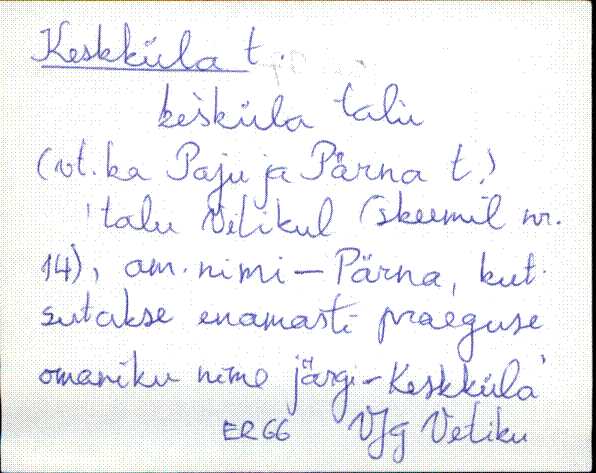 Keskküla t.
kesküla talu
(vt. ka Paju ja Pärna t.)
'talu Vetikul (skeemil nr.
14), am. nimi – Pärna, kut-
sutakse enamasti praeguse
omaniku nime järgi – Keskküla'
ER66 VJg Vetiku